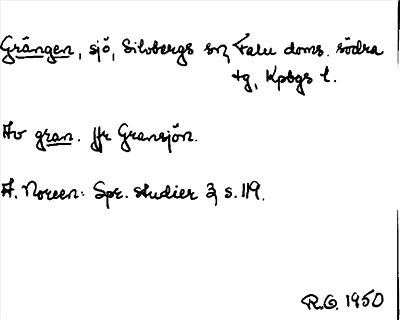 Grängen, sjö, Silvbergs sn, Falu doms. södra
tg, Kpbgs l.
Av gran. Jfr Gransjön.
A. Noreen: Spr. studier 3, s. 119.
R.O. 1950